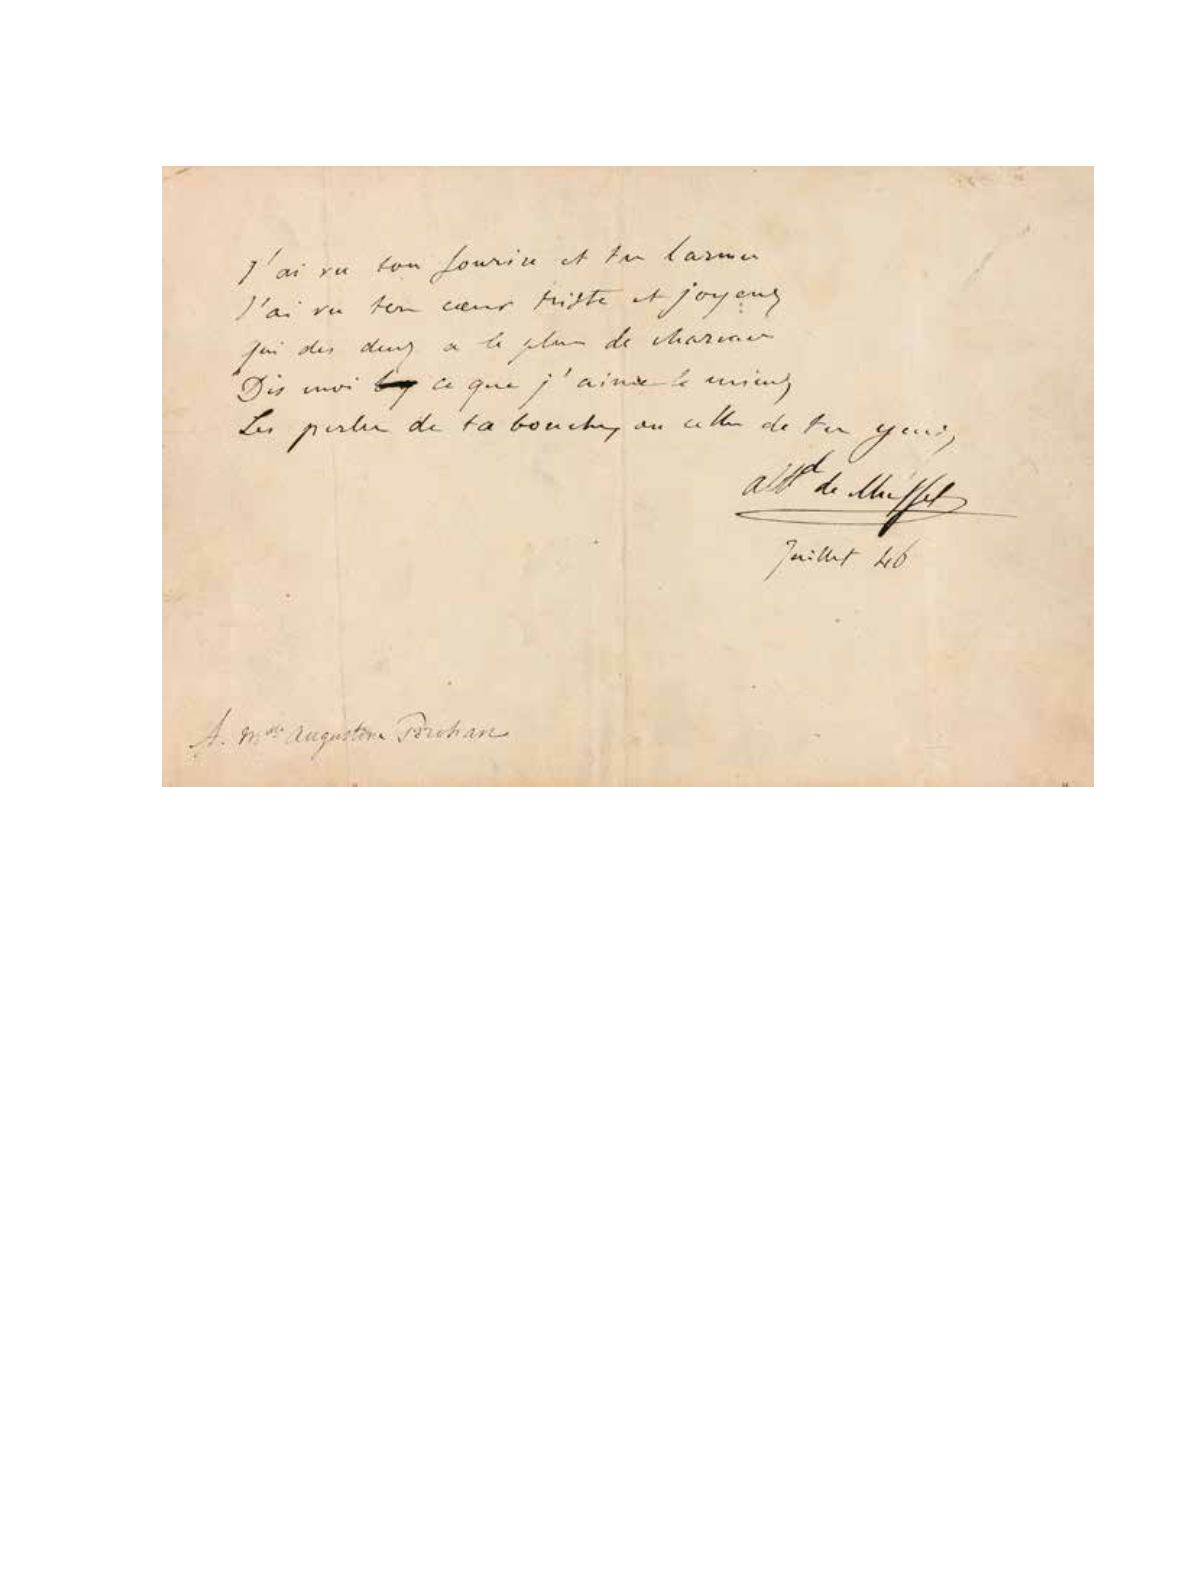 J'ai vu ton sourire et tes larmes
J'ai vu ton cœur triste et joyeux
qui des deux a le plus de charmes
Dis moi ce que j'aime le mieux
Les perles de ta bouche, ou celles de tes yeux,
Alf^d de Musset
Juillet 46
A. M^elle Augustine Brohan